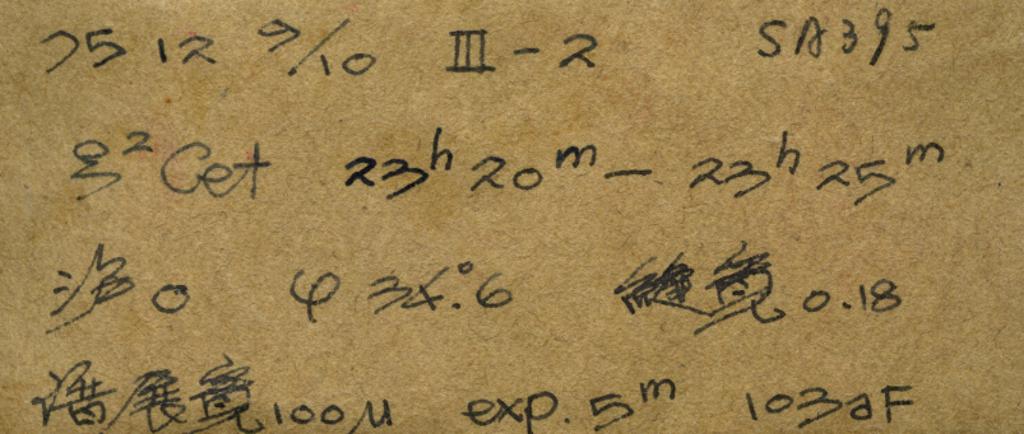 75 12 9/10 III-2 SA395
ξ² Cet 23ʰ20ᵐ - 23ʰ25ᵐ
0 φ 34°.6 缝宽 0.18
谱展宽 100μ exp. 5ᵐ 103aF